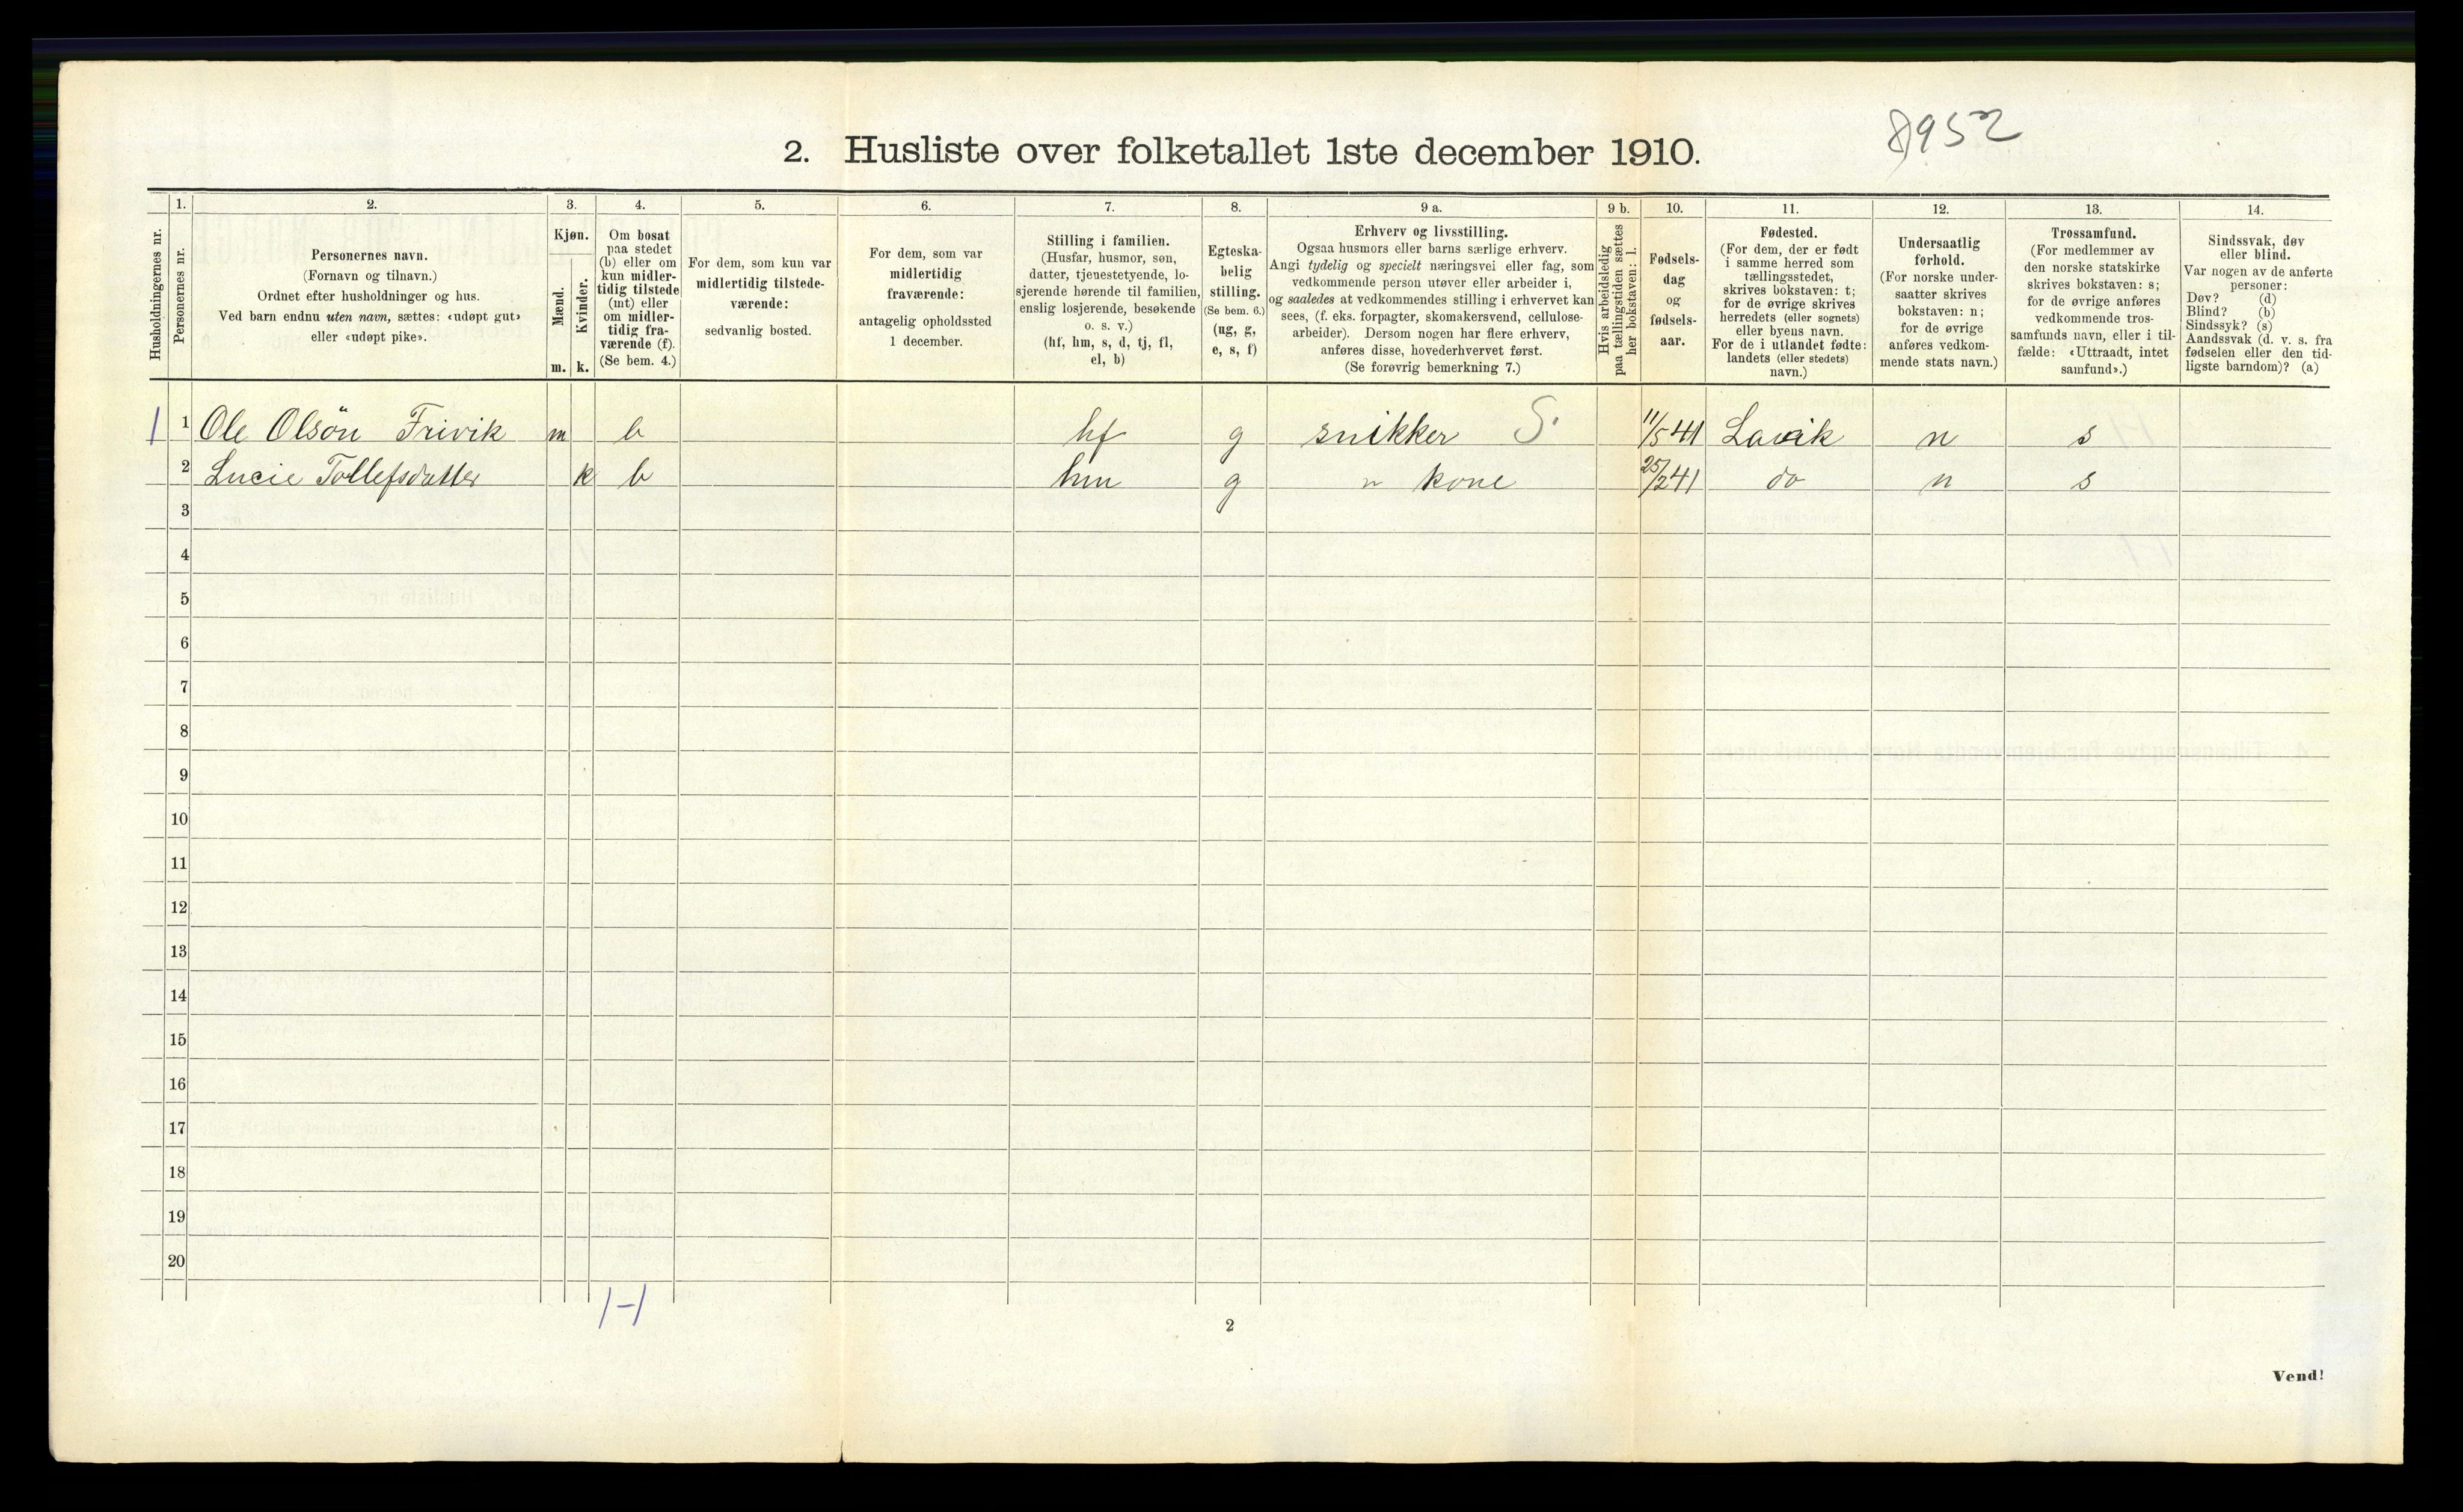 8952
2. Husliste over folketallet 1ste december 1910.
Husholdningernes nr.
1.
Personernes nr.
2.
Personernes navn.
(Fornavn og tilnavn.)
Ordnet efter husholdninger og hus.
Ved barn endnu uten navn, sættes: «udøpt gut»
eller «udøpt pike».
3.
Kjøn.
Mænd.
Kvinder.
m. k.
4.
Om bosat
paa stedet
(b) eller om
kun midler-
tidig tilstede
(mt) eller
om midler-
tidig fra-
værende (f).
(Se bem. 4.)
5.
For dem, som kun var
midlertidig tilstede-
værende:
sedvanlig bosted.
6.
For dem, som var
midlertidig
fraværende:
antagelig opholdssted
1 december.
7.
Stilling i familien.
(Husfar, husmor, søn,
datter, tjenestetyende, lo-
sjerende hørende til familien,
enslig losjerende, besøkende
o. s. v.)
(hf, hm, s, d, tj, fl,
el, b)
8.
Egteska-
belig
stilling.
(Se bem. 6.)
(ug, g,
e, s, f)
9 a.
Erhverv og livsstilling.
Ogsaa husmors eller barns særlige erhverv.
Angi tydelig og specielt næringsvei eller fag, som
vedkommende person utøver eller arbeider i,
og saaledes at vedkommendes stilling i erhvervet kan
sees, (f. eks. forpagter, skomakersvend, cellulose-
arbeider). Dersom nogen har flere erhverv,
anføres disse, hovederhvervet først.
(Se forøvrig bemerkning 7.)
9 b.
Hvis arbeidsledig
paa tællingstiden sættes
her bokstaven: l.
10.
Fødsels-
dag
og
fødsels-
aar.
11.
Fødested.
(For dem, der er født
i samme herred som
tællingsstedet,
skrives bokstaven: t;
for de øvrige skrives
herredets (eller sognets)
eller byens navn.
For de i utlandet fødte:
landets (eller stedets)
navn.)
12.
Undersaatlig
forhold.
(For norske under-
saatter skrives
bokstaven: n;
for de øvrige
anføres vedkom-
mende stats navn.)
13.
Trossamfund.
(For medlemmer av
den norske statskirke
skrives bokstaven: s;
for de øvrige anføres
vedkommende tros-
samfunds navn, eller i til-
fælde: «Uttraadt, intet
samfund».)
14.
Sindssvak, døv
eller blind.
Var nogen av de anførte
personer:
Døv? (d)
Blind? (b)
Sindssyk? (s)
Aandssvak (d. v. s. fra
fødselen eller den tid-
ligste barndom)? (a)
1 1 Ole Olsön Frivik m b hf g snikker S. 11/5 41 Lavik n s
2 Lucie Tollefsdatter k b hm g " kone 25/2 41 do n s
3
4
5
6
7
8
9
10
11
12
13
14
15
16
17
18
19
20
1-1
2
Vend!